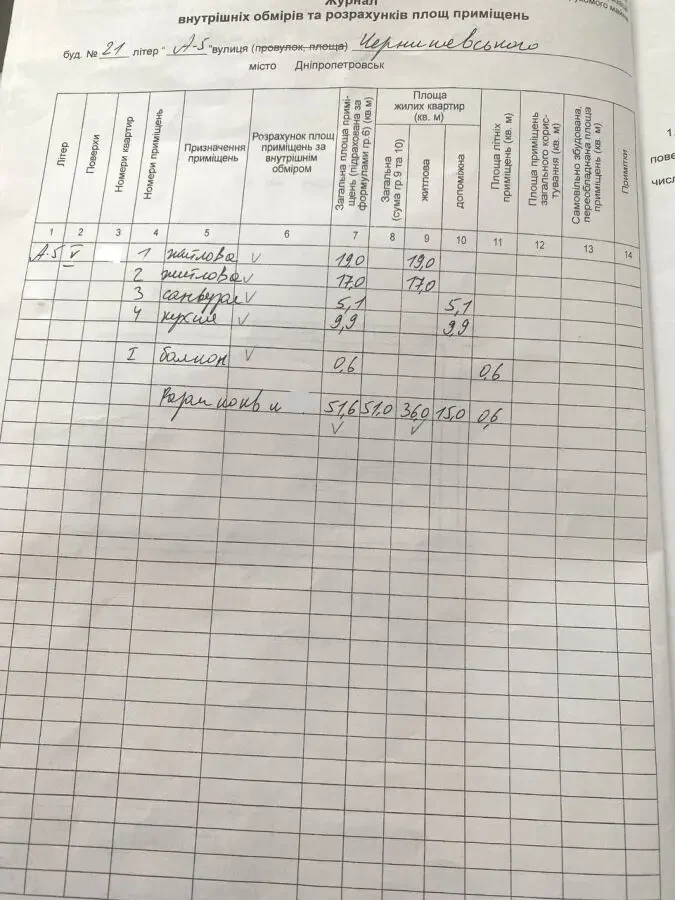 Журнал
внутрішніх обмірів та розрахунків площ приміщень
буд. № 21 літер "А-5" вулиця (провулок, площа) Чернишевського
місто Дніпропетровськ
Літер
Поверхи
Номери квартир
Номери приміщень
Призначення приміщень
Розрахунок площ приміщень за внутрішнім обміром
Загальна площа приміщень (підрахована за формулами гр.6) (кв.м)
Площа жилих квартир (кв. м)
Загальна (сума гр 9 та 10)
житлова
допоміжна
Площа літніх приміщень (кв. м)
Площа приміщень загального користування (кв. м)
Самовільно збудована, переобладнана площа приміщень (кв. м)
Примітки
1 2 3 4 5 6 7 8 9 10 11 12 13 14
А-5 V 1 житлова 19,0 19,0
2 житлова 17,0 17,0
3 санвузол 5,1 5,1
4 кухня 9,9 9,9
I балкон 0,6 0,6
Разом 51,6 51,0 36,0 15,0 0,6
1.
пове
числ